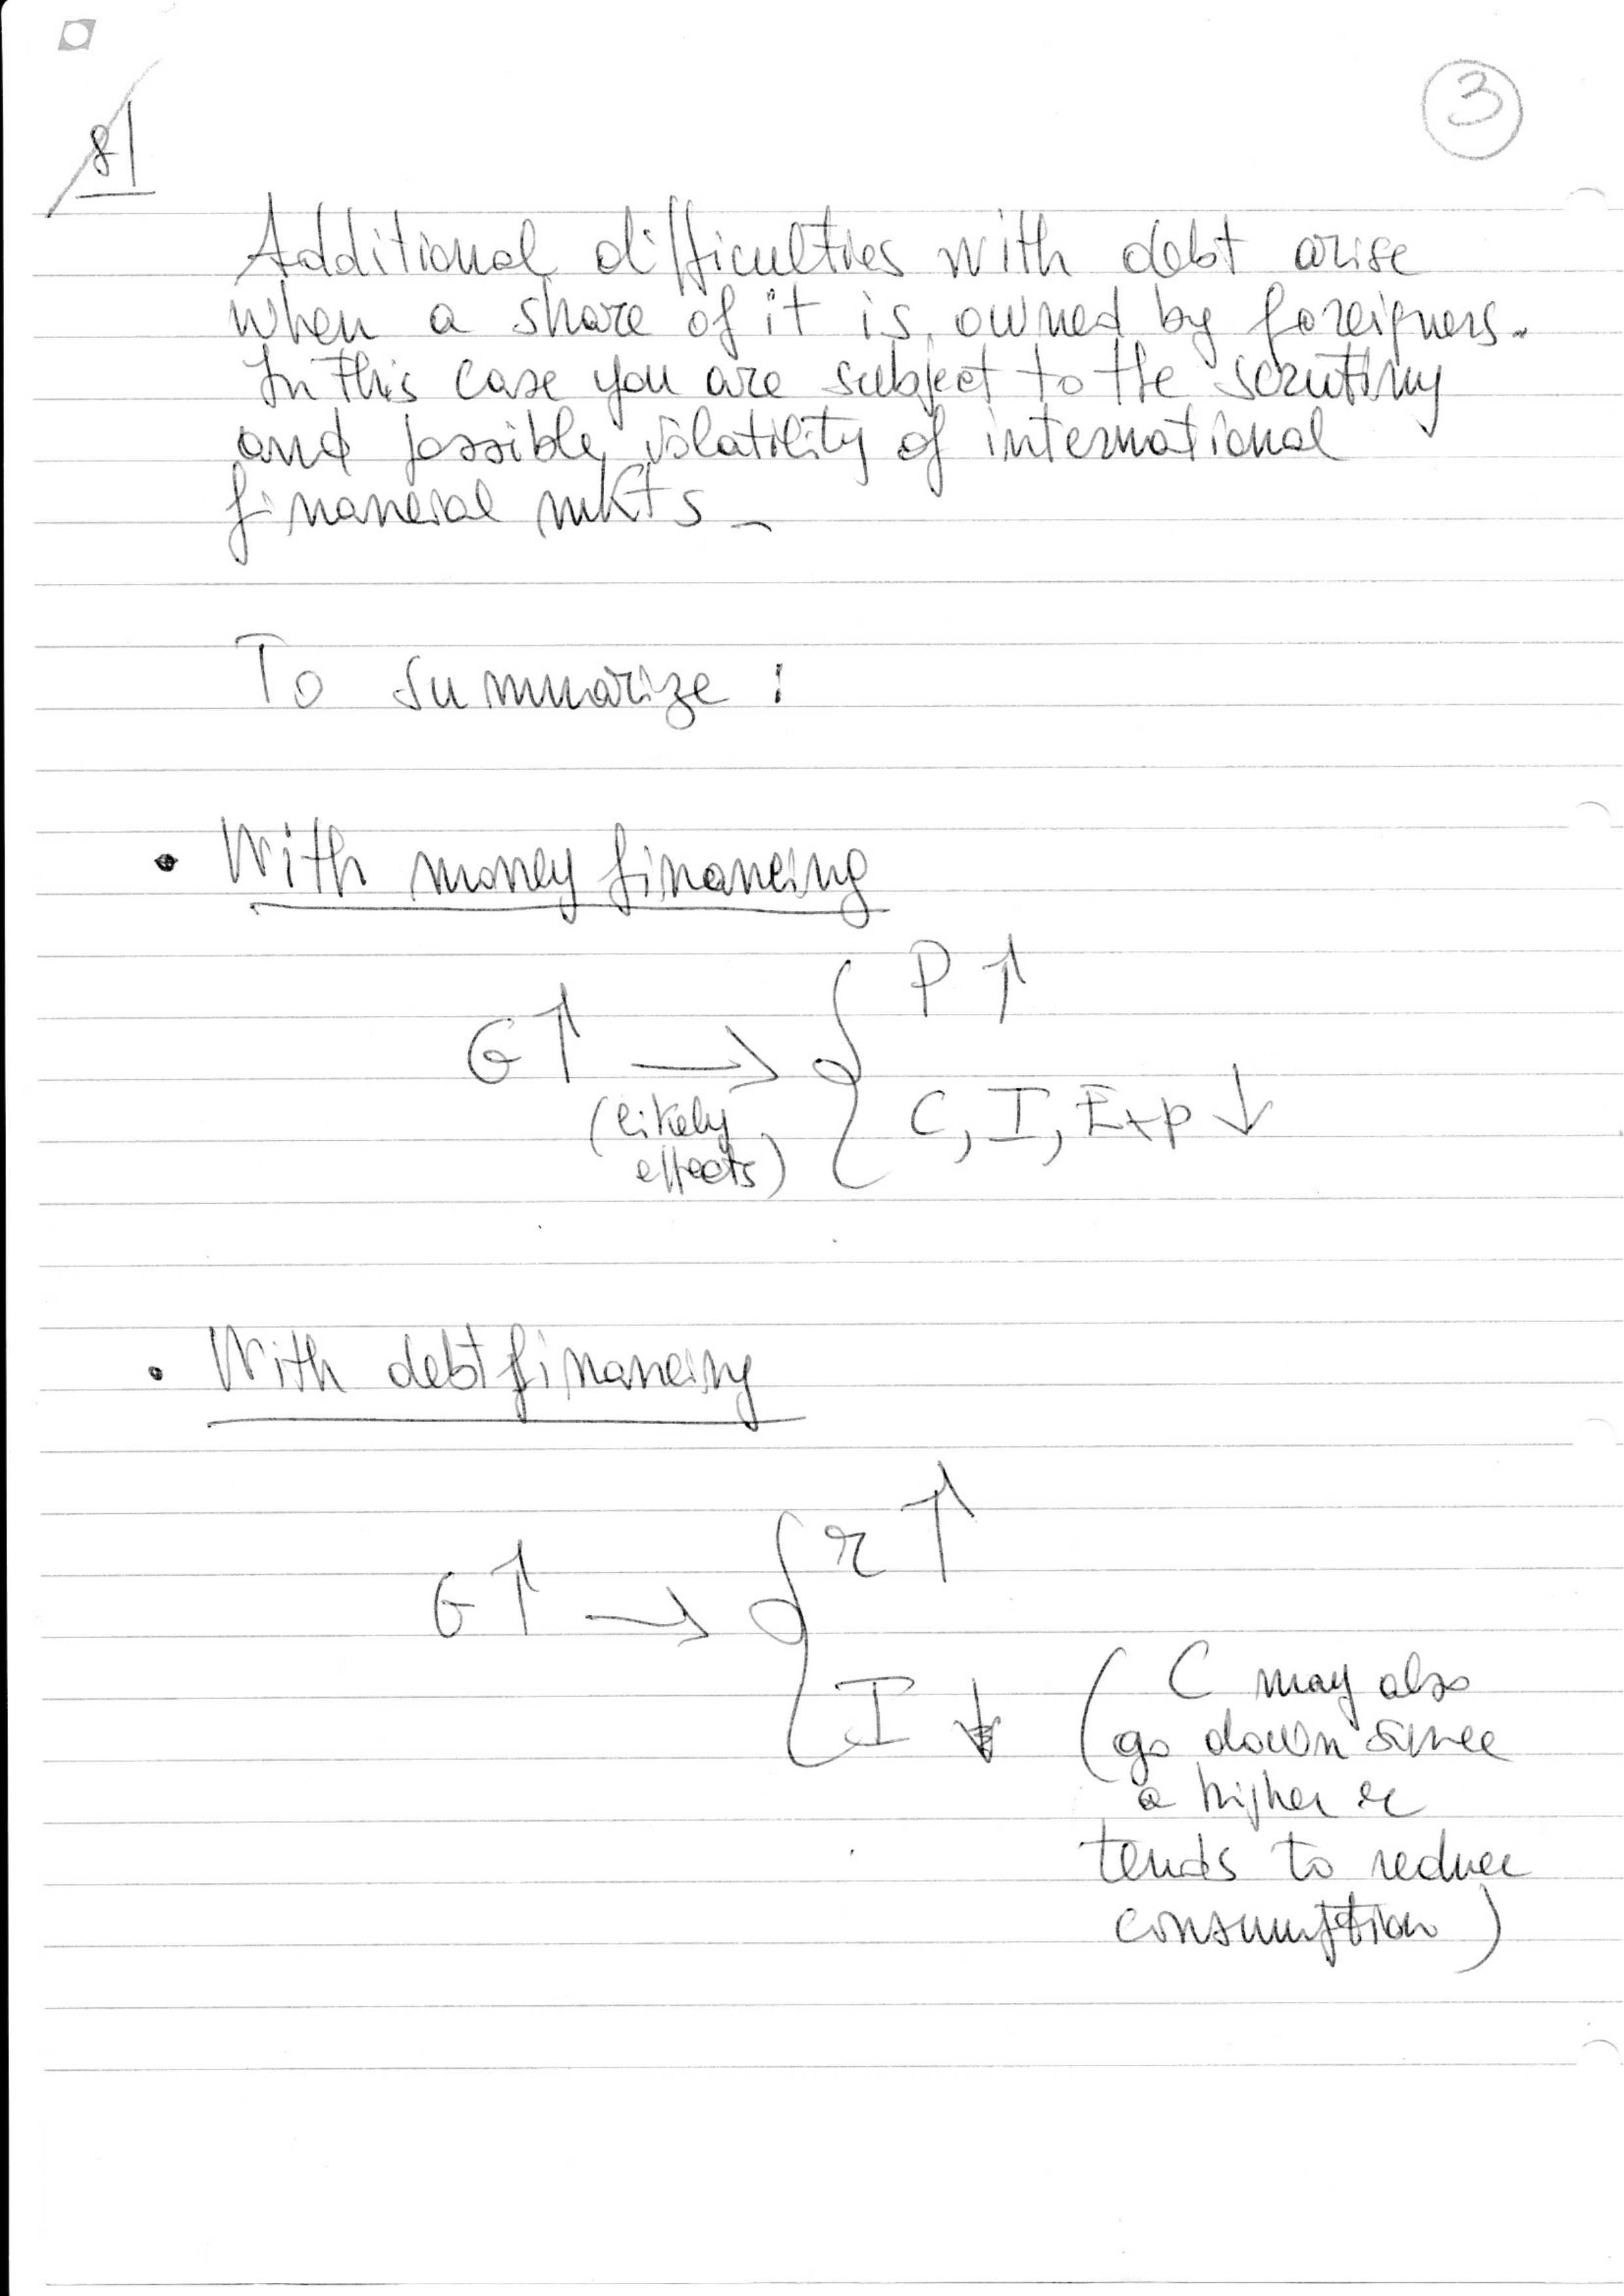 8|
3
Additional difficulties with debt arise
when a share of it is owned by foreigners.
In this case you are subject to the scrutiny
and possible volatility of international
financial mkts -
To summarize :
• With money financing
P ↑
G ↑ →
(likely
effects)
C, I, Exp ↓
• With debt financing
r ↑
G ↑ →
I ↓
( C may also
go down since
a higher r
tends to reduce
consumption )